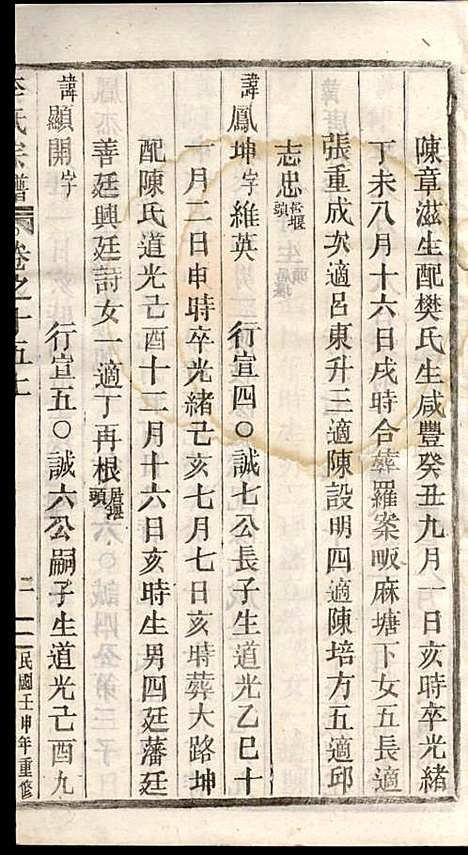 陳章滋生配樊氏生咸豐癸丑九月一日亥時卒光緒
丁未八月十六日戌時合葬羅案畈麻塘下女五長適
張重成次適呂東升三適陳設明四適陳培方五適邱
志忠
諱鳳坤字維英 行宣四〇誠七公長子生道光乙巳十
一月二日申時卒光緒己亥七月七日亥時葬大路坤
配陳氏道光己酉十二月十六日亥時生男四廷藩廷
善廷興廷詩女一適丁再根居堰頭
諱顯開字 行宣五〇誠六公嗣子生道光己酉九
李氏宗譜 卷之十五上 民國壬申年重修